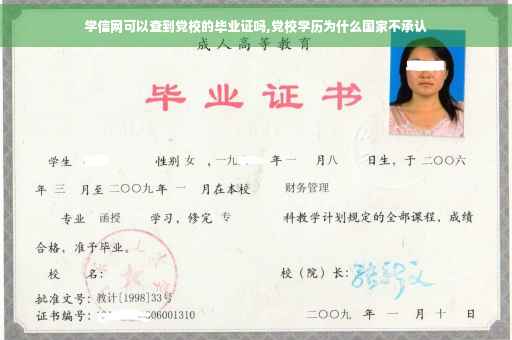 学信网可以查到党校的毕业证吗,党校学历为什么国家不承认
成人高等教育
毕业证书
学生 性别 女 ，一九 年一 月八 日生，于二〇〇六
年 三 月至二〇〇九年 一 月在本校 财务管理
专业 函授 学习，修完 专 科教学计划规定的全部课程，成绩
合格，准予毕业。
校 名： 校（院）长：
批准文号：教计[1998]33号
证书编号： 06001310 二〇〇九 年 一 月 十 日